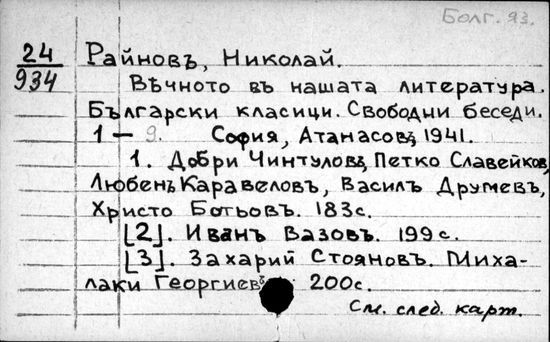 Болг. 93.
24 Райновъ, Николай.
934 Вѣчното въ нашата литература.
Български класици. Свободни беседи.
1 – 9. София, Атанасовъ, 1941.
1. Добри Чинтуловъ, Петко Славейковъ,
Любенъ Каравеловъ, Василъ Друмевъ,
Христо Ботьовъ. 183с.
[2]. Иванъ Вазовъ. 199с.
[3]. Захарий Стояновъ. Миха-
лаки Георгиевъ 200с.
См. след. карт.